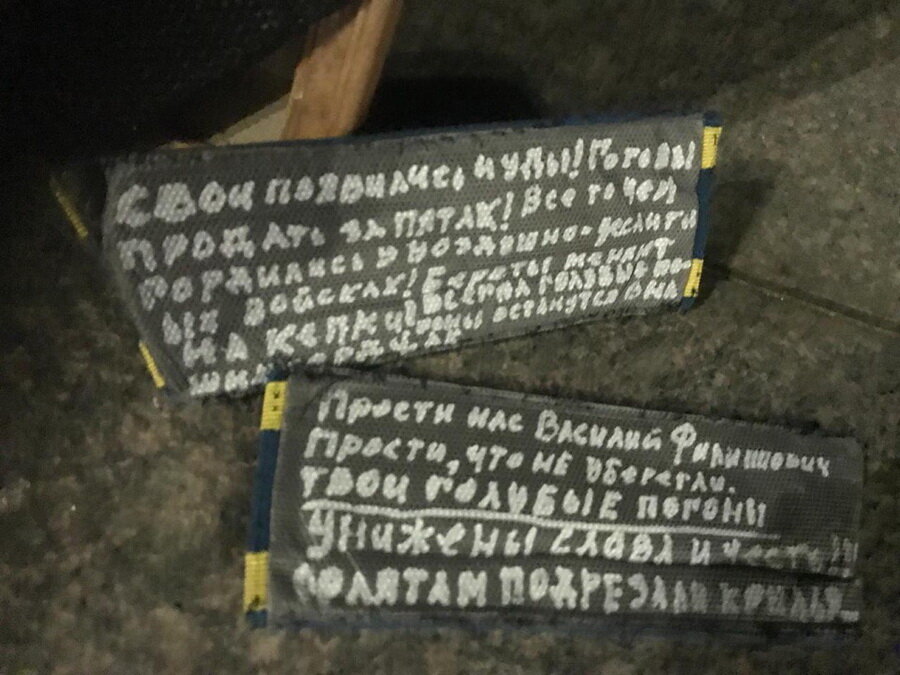 СВОИ ПОЯВИЛИСЬ ИУДЫ! Готовы
ПРОДАТЬ ЗА ПЯТАК! Все то чем
гордились в воздушно-десантн
ых войсках! Береты меняют
НА КЕПКИ! голубые по-
гоны останутся в на
ших сердцах
Прости нас Василий Филиппович
Прости, что не уберегли.
ТВОИ ГОЛУБЫЕ ПОГОНЫ
УНИЖЕНЫ СЛАВА И честь!!!
РОЛЯТАМ ПОДРЕЗАЛИ КРЫЛЬЯ